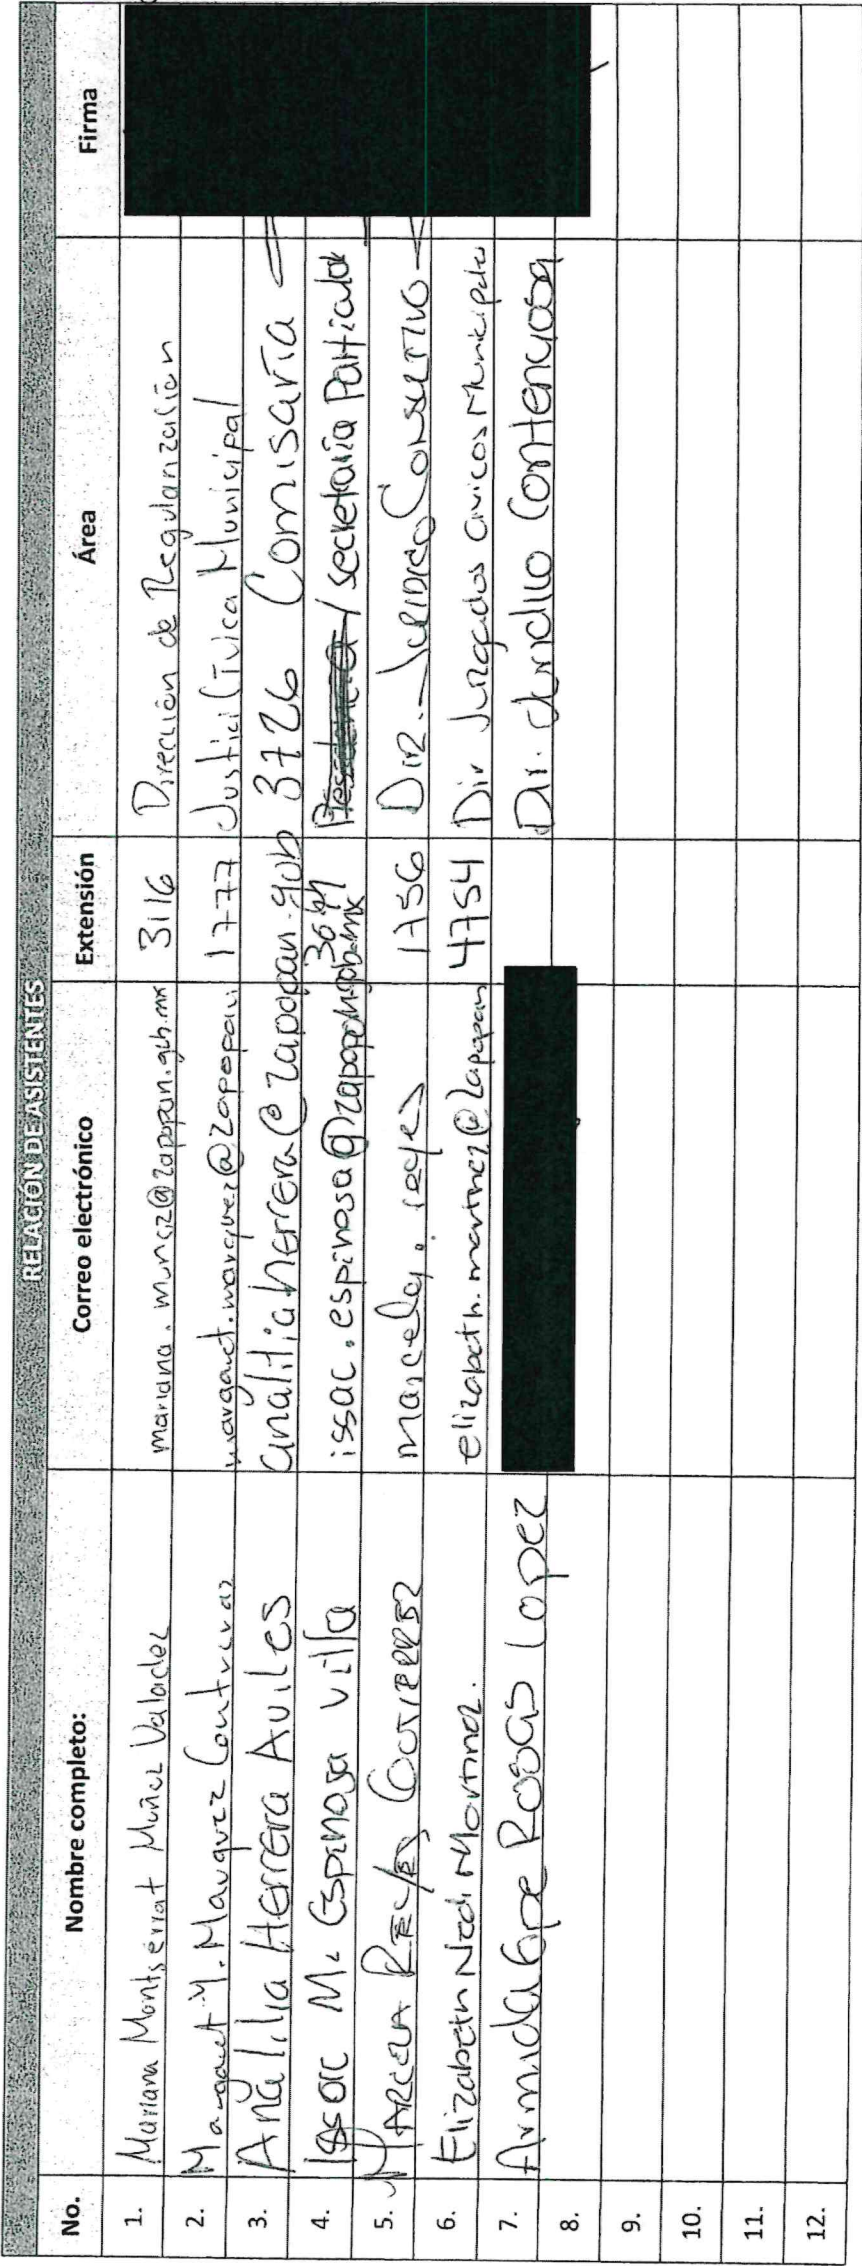 RELACIÓN DE ASISTENTES
No. Nombre completo: Correo electrónico Extensión Área Firma
1. Mariana Montserrat Muñoz Valadez mariana.munoz@zapopan.gob.mx 3116 Dirección de Regularización
2. Margaret Y. Marquez Contreras margaret.marquez@zapopan 1777 Justicia Cívica Municipal
3. Ana lilia Herrera Aviles analilia.herrera@zapopan.gob 3726 Comisaría
4. Issac M. Espinosa villa issac.espinosa@zapopan.gob.mx Presidencia / secretaria Particular
5. MARCELA REYES GUTIERREZ marcela.reyes 1756 DIR. JURIDICO CONSULTIVO
6. Elizabeth Nedi Martinez. elizabeth.martinez@zapopan 4754 Dir Juzgados Civicos Municipales
7. Armida Gpe Rojas Lopez Dir. Juridico Contencioso
8.
9.
10.
11.
12.